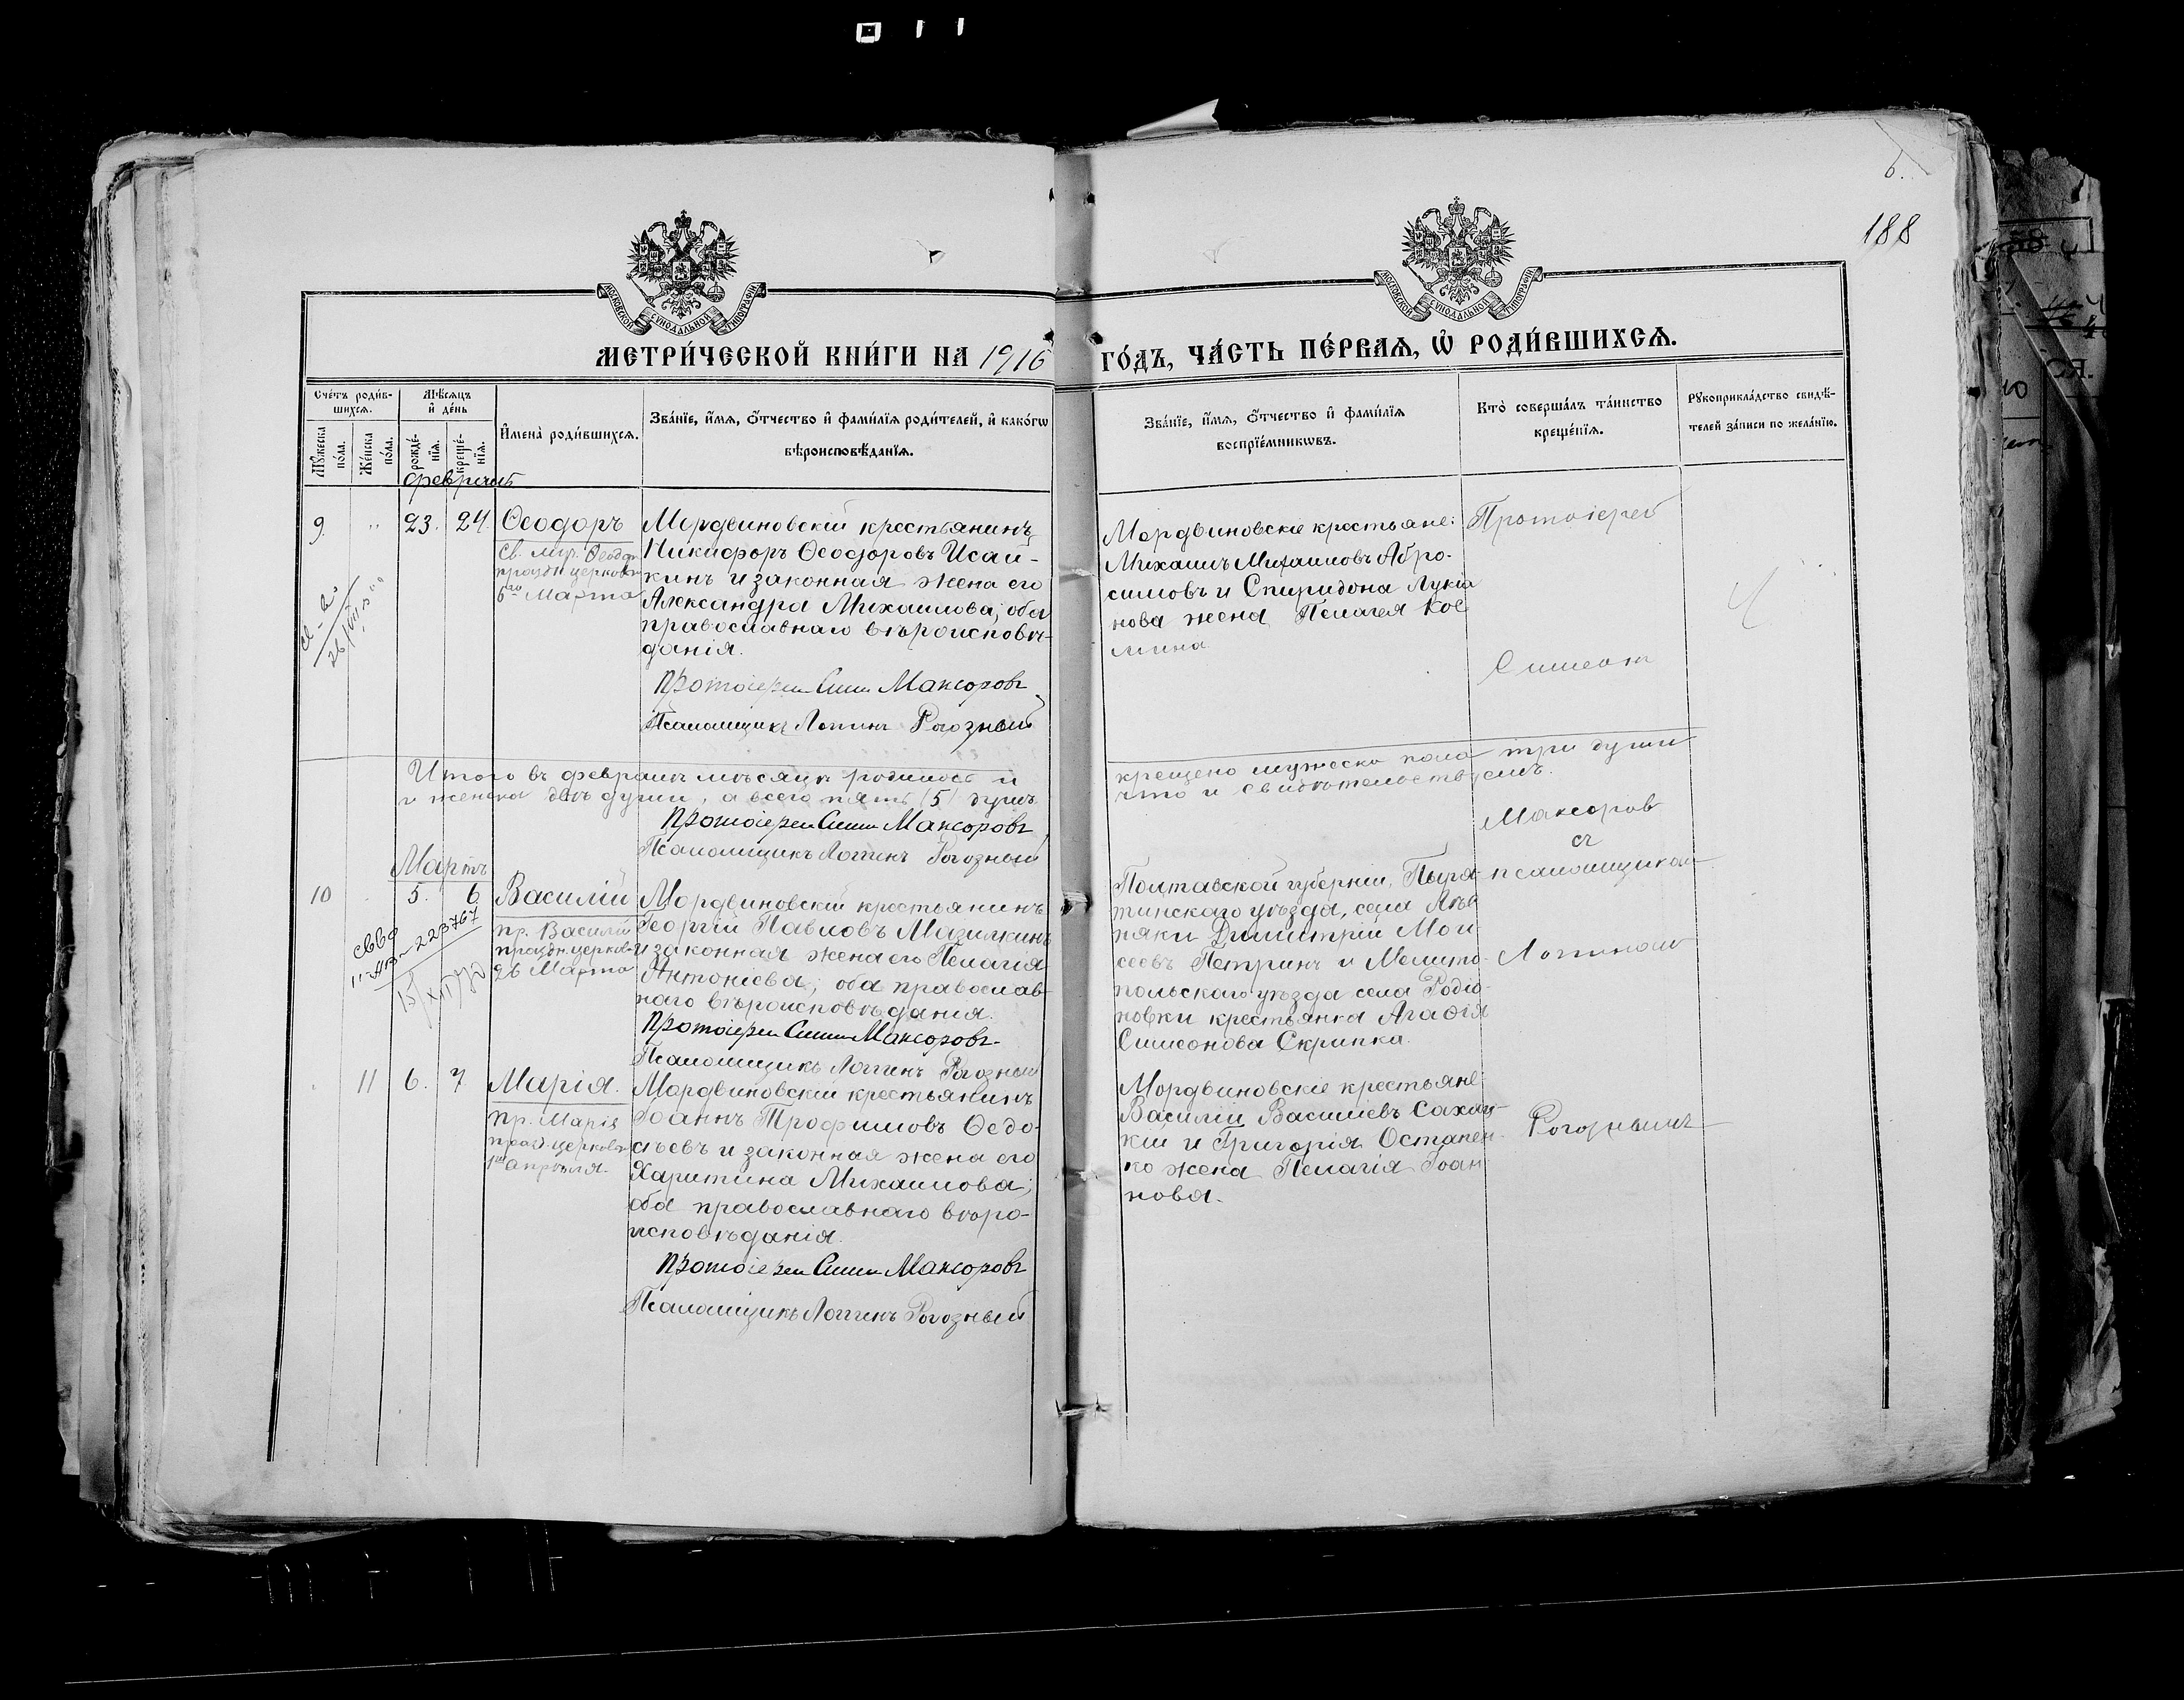 6.
188
МОСКОВСКОЙ СУНОДАЛЬНОЙ ТИПОГРАФІИ
МОСКОВСКОЙ СУНОДАЛЬНОЙ ТИПОГРАФІИ
МЕТРИ́ЧЕСКОЙ КНИ́ГИ НА 1916 ГО́ДЪ, ЧА́СТЬ ПЕ́РВАЯ, Ѡ РОДИ́ВШИХСѦ.
Сче́тъ роди́в-
шихсѧ.
Мꙋ́жеска
по́ла.
Же́нска
по́ла.
Мѣ́сѧцъ
и҆ де́нь
рожде́-
нїѧ.
креще́-
нїѧ.
И҆мена̀ роди́вшихсѧ.
Зва́нїе, и҆́мѧ, ѻ҆́тчество и҆ фами́лїѧ роди́телей, и҆ како́гѡ
вѣроисповѣ́данїѧ.
Зва́нїе, и҆́мѧ, ѻ҆́тчество и҆ фами́лїѧ
воспрїе́мникѡвъ.
Кто̀ соверша́лъ та́инство
креще́нїѧ.
Рꙋкоприкла́дство свидѣ́-
телей за́писи по жела́нїю.
Февраль
9.
23.
24.
Ѳеодоръ
Св. муч. Ѳеодор
праздн. церковью
6го Марта
Мордвиновскій крестьянинъ
Никифоръ Ѳеодоровъ Исай-
кинъ и законная жена его
Александра Михаилова; оба
православнаго вѣроисповѣ-
данія.
Протоіерей Сим. Максоровъ
Псаломщикъ Логгинъ Рогозный
Мордвиновскіе крестьяне:
Михаилъ Михаиловъ Абро-
симовъ и Спиридона Лукіа
нова жена Пелагея Кос
мина
Протоіерей
Симеон
Итого въ февралѣ мѣсяцѣ родилось и
и женска двѣ души, а всего пять (5) душъ
крещено мужеска пола три души
что и свидѣтельствуемъ.
Протоіерей Сим. Максоровъ
Псаломщикъ Логгинъ Рогозный
Максоров
съ
псаломщиком
Мартъ
10
5.
6
223767
Василій
Пр. Василій
праздн. церковью
26 Марта
Мордвиновскій крестьянинъ
Георгій Павловъ Мазилкинъ
и законная жена его Пелагія
Антоніева; оба православ-
наго вѣроисповѣданія.
Протоіерей Сим. Максоровъ
Псаломщикъ Логгинъ Рогозный
Полтавской губерніи, Пыря
тинскаго уѣзда, села
Димитрій Мои
сеевъ Петринъ и Мелито-
польскаго уѣзда села Родіо-
новки крестьянка Агафія
Симеонова Скрипка.
Логином
11
6.
7
Марія.
Пр. Марія
празд. церковью
1го апрѣля.
Мордвиновскій крестьянинъ
Іоаннъ Трофимовъ Ѳедо-
сѣевъ и законная жена его
Харитина Михаилова;
оба православнаго вѣро-
исповѣданія.
Протоіерей Сим. Максоровъ
Псаломщикъ Логгинъ Рогозный
Мордвиновскіе крестьяне:
Василій Василіевъ Сахац-
кій и Григорія Остапен-
ко жена Пелагія Іоан
нова.
Рогознымъ